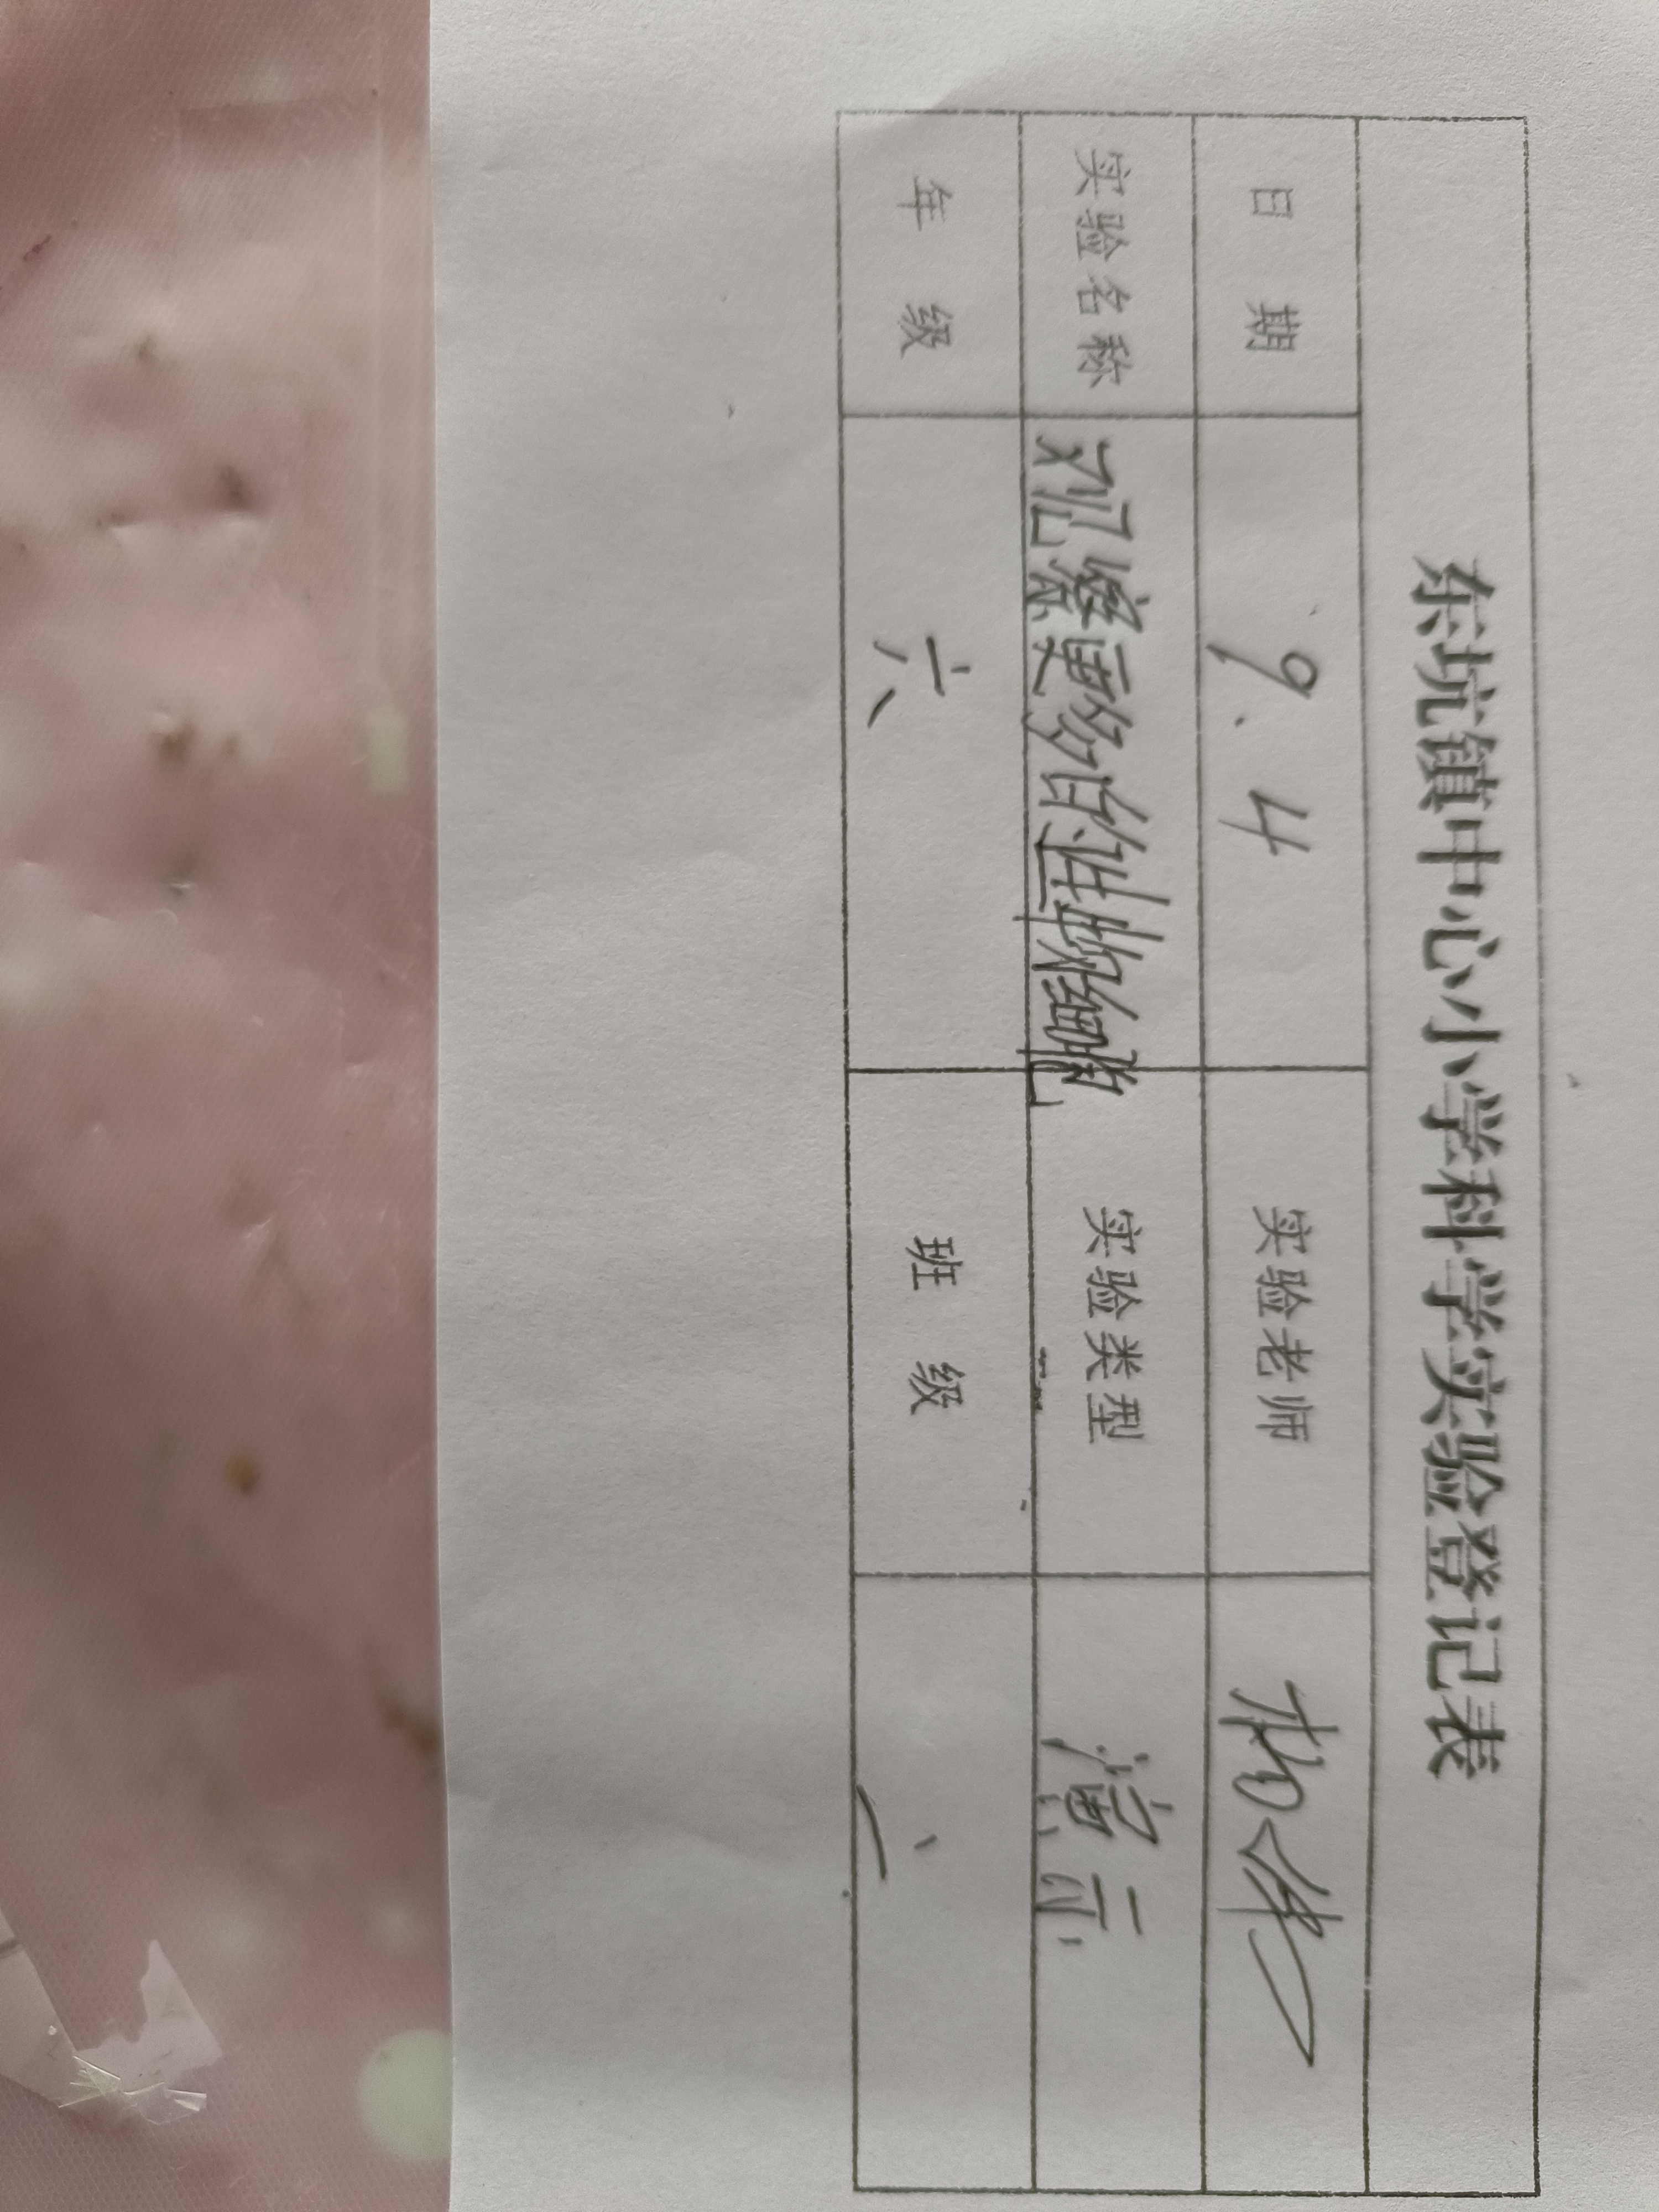 东坑镇中心小学科学实验登记表
日 期 9.4 实验老师
实验名称 观察更多的生物细胞 实验类型 演示
年 级 六 班 级 二